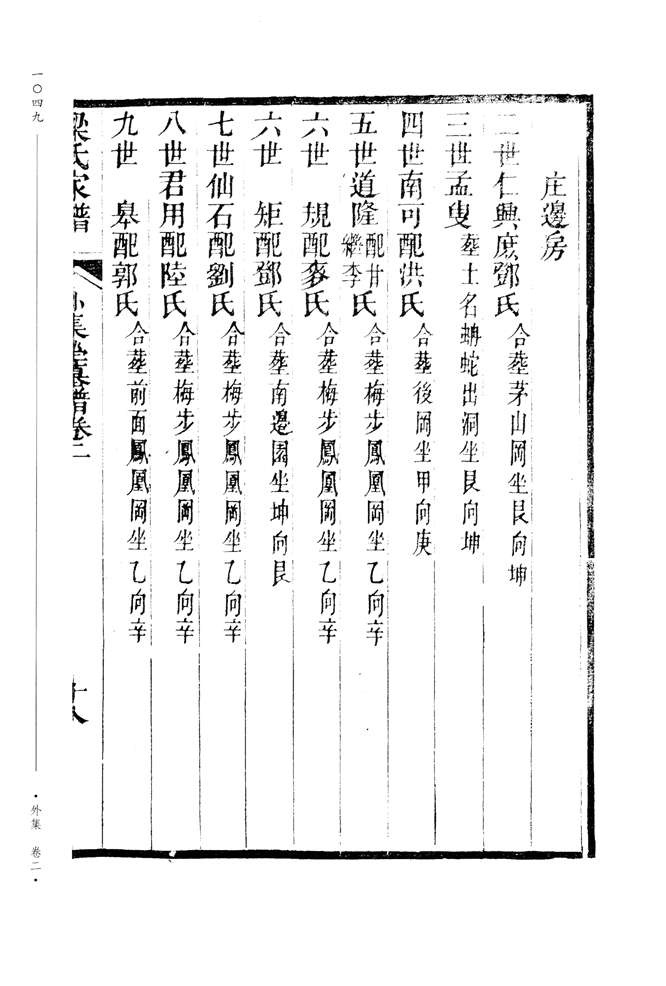 庄邊房
二世仁興庶鄧氏合葬茅山岡坐艮向坤
三世孟叟葬土名蟒蛇出洞坐艮向坤
四世南可配洪氏合葬後岡坐甲向庚
五世道隆配甘繼李氏合葬梅步鳳凰岡坐乙向辛
六世 規配麥氏合葬梅步鳳凰岡坐乙向辛
六世 矩配鄧氏合葬南邊園坐坤向艮
七世仙石配劉氏合葬梅步鳳凰岡坐乙向辛
八世君用配陸氏合葬梅步鳳凰岡坐乙向辛
九世 皋配郭氏合葬前面鳳凰岡坐乙向辛
梁氏家譜 外集塋墓譜卷二 十八
一〇四九
·外集 卷二·